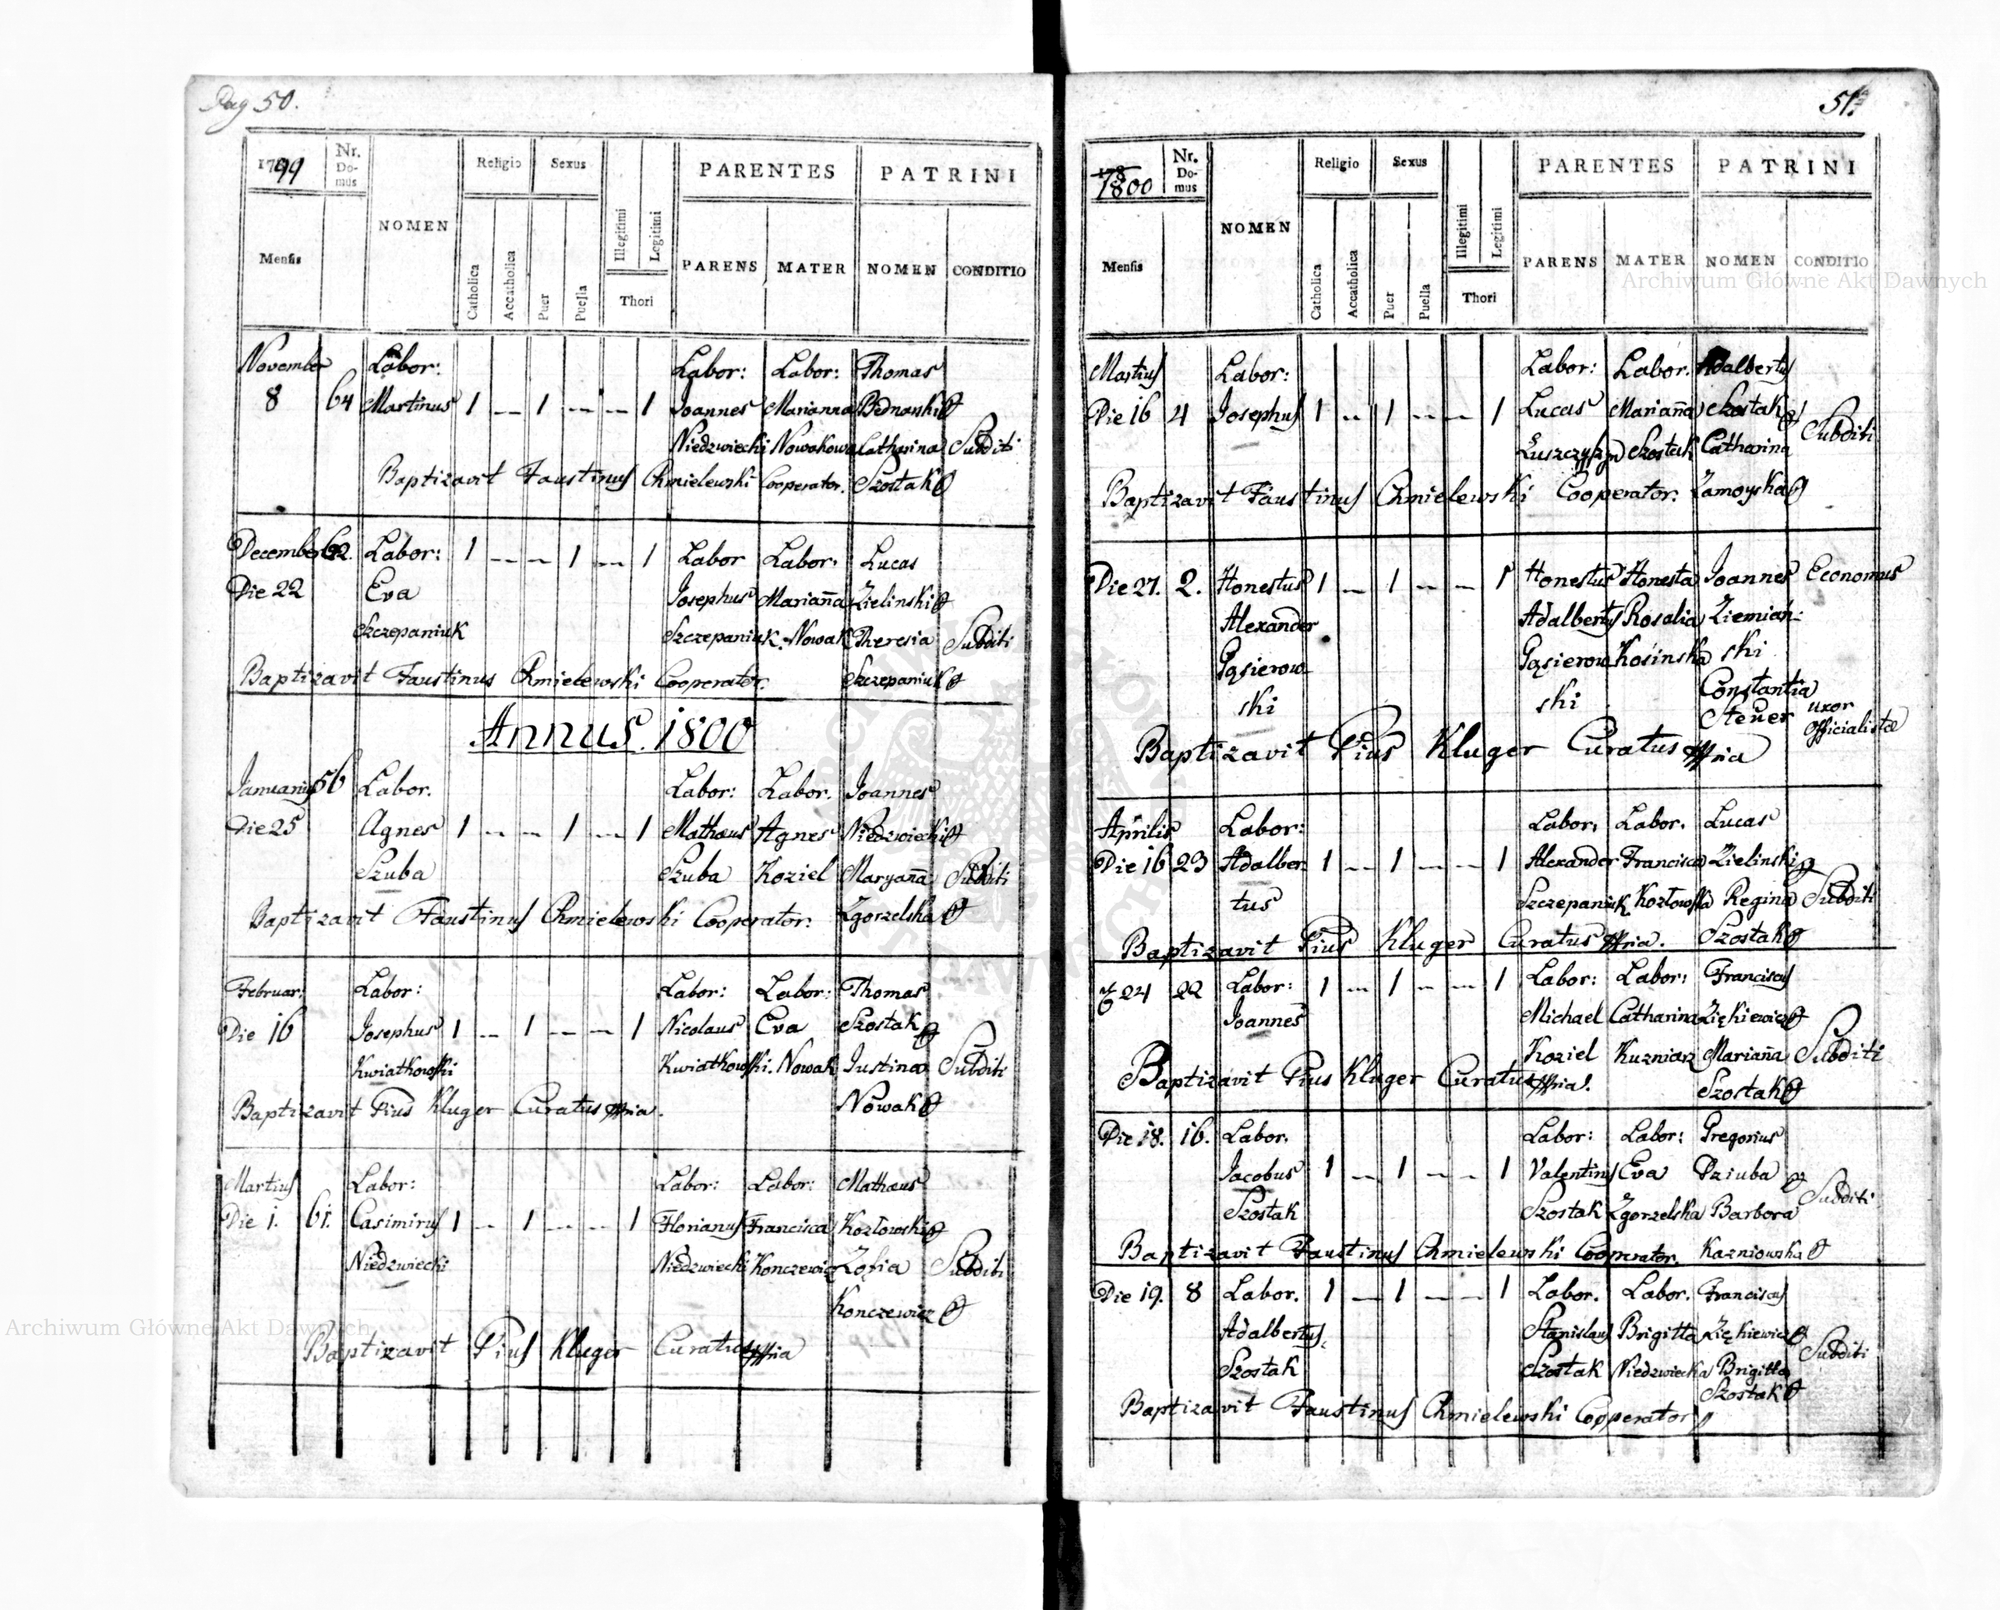 Pag 50.
1799
Nr. Domus
NOMEN
Religio
Sexus
PARENTES
PATRINI
Mensis
Catholica
Accatholica
Puer
Puella
Illegitimi
Legitimi
Thori
PARENS
MATER
NOMEN
CONDITIO
November Labor: Labor: Labor: Thomas
8 64 Martinus 1 – 1 – – 1 Joannes Marianna Bednarski
Niedzwiecki Nowakowa Catharina Subditi
Baptizavit Faustinus Chmielewski Cooperator. Szostak
December 62. Labor: 1 – – 1 – 1 Labor Labor. Lucas
Die 22 Eva Josephus Mariana Zielinski
Szczepaniuk Szczepaniuk. Nowak Theresia Subditi
Baptizavit Faustinus Chmielewski Cooperator. Szczepaniuk
Annus. 1800
Januarius 56 Labor. Labor: Labor. Joannes
Die 25 Agnes 1 – – 1 – 1 Mathæus Agnes Niedzwiecki
Szuba Szuba Koziel Maryana Subditi
Baptizavit Faustinus Chmielewski Cooperator. Zgorzelska
Februar. Labor: Labor: Labor: Thomas
Die 16 Josephus 1 – 1 – – 1 Nicolaus Eva Szostak
Kwiatkowski Kwiatkowski. Nowak Justina Subditi
Baptizavit Pius Kluger Curatus mpria. Nowak
Martius Labor: Labor: Labor: Mathæus
Die 1. 61. Casimirus 1 – 1 – – 1 Florianus Francisca Kozłowski
Niedzwiecki Niedzwiecki Konczewicz Zofia Subditi
Konczewicz
Baptizavit Pius Kluger Curatus mpria
51.
1800
Nr. Domus
NOMEN
Religio
Sexus
PARENTES
PATRINI
Mensis
Catholica
Accatholica
Puer
Puella
Illegitimi
Legitimi
Thori
PARENS
MATER
NOMEN
CONDITIO
Archiwum Główne Akt Dawnych
Martius Labor: Labor: Labor. Adalbertus
Die 16 4 Josephus 1 – 1 – – 1 Lucas Mariana Szostak
Łuszczyszyn Szostak Catharina Subditi
Baptizavit Faustinus Chmielewski Cooperator. Zamoyska
Die 27. 2. Honestus 1 – 1 – – 1 Honestus Honesta Joannes Economus
Alexander Adalbertus Rosalia Ziemian-
Gąsierow Gąsierow Kosinska ski
ski ski Constantia uxor
Steuer Officialistæ
Baptizavit Pius Kluger Curatus mpria
Aprilis Labor: Labor. Labor. Lucas
Die 16 23 Adalber 1 – 1 – – 1 Alexander Francisca Zielinski
tus Szczepaniuk Kozłowska Regina Subditi
Baptizavit Pius Kluger Curatus mpria. Szostak
24 22 Labor: 1 – 1 – – 1 Labor: Labor: Franciscus
Joannes Michael Catharina Ziękiewicz
Koziel Kuzniarz Mariana Subditi
Baptizavit Pius Kluger Curatus mpria. Szostak
Die 18. 16. Labor. Labor: Labor: Gregorius
Jacobus 1 – 1 – – 1 Valentinus Eva Dziuba
Szostak Szostak Zgorzelska Barbora Subditi
Baptizavit Faustinus Chmielewski Cooperator. Kazniowska
Die 19. 8 Labor. 1 – 1 – – 1 Labor. Labor. Franciscus
Adalbertus. Stanislaus Brigitta Ziękiewicz
Szostak Szostak Niedzwiecka Brigitta Subditi
Szostak
Baptizavit Faustinus Chmielewski Cooperator
Archiwum Główne Akt Dawnych